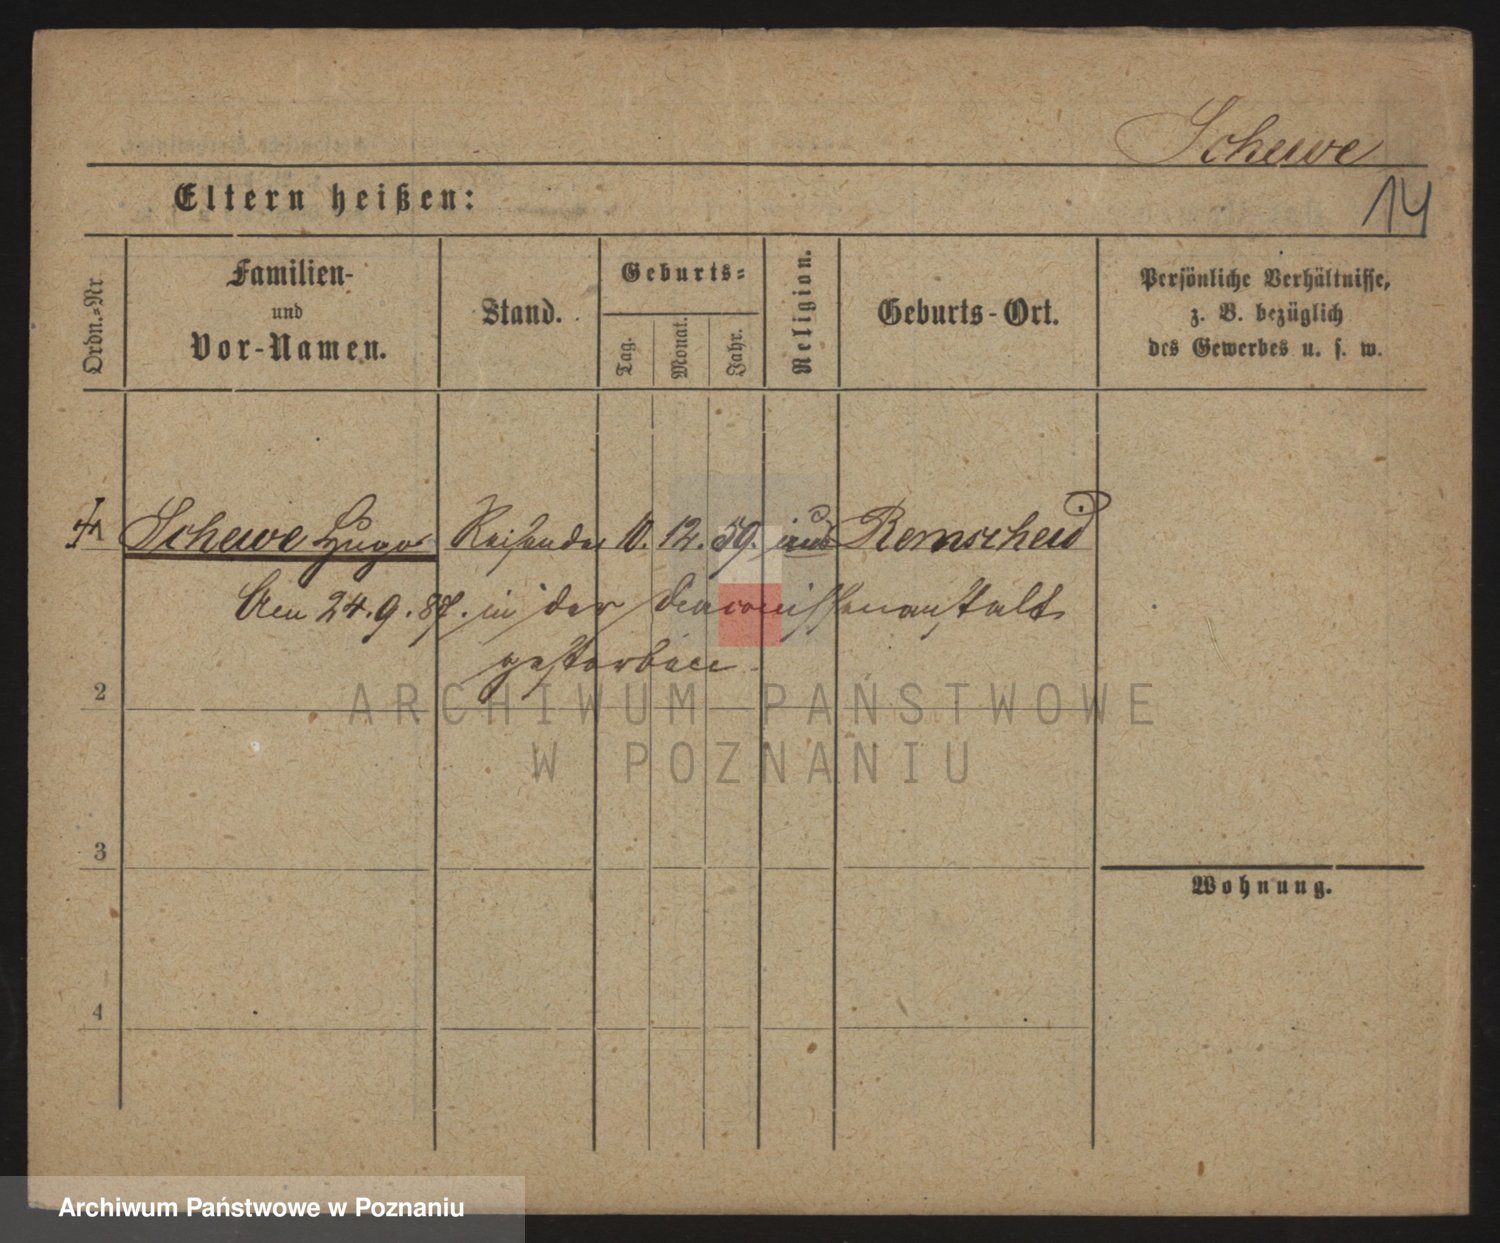 Schewe
Eltern heißen:
14
Ordn.-Nr.
Familien-
und
Vor-Namen.
Stand.
Geburts-
Tag.
Monat.
Jahr.
Religion.
Geburts-Ort.
Persönliche Verhältnisse,
z. B. bezüglich
des Gewerbes u. s. w.
1 Schewe Hugo Reisender 10. 12. 59. Remscheid
Am 24. 9. 87. in der Diaconissenanstalt
gestorben.
2
ARCHIWUM PAŃSTWOWE
W POZNANIU
3
Wohnung.
4
Archiwum Państwowe w Poznaniu